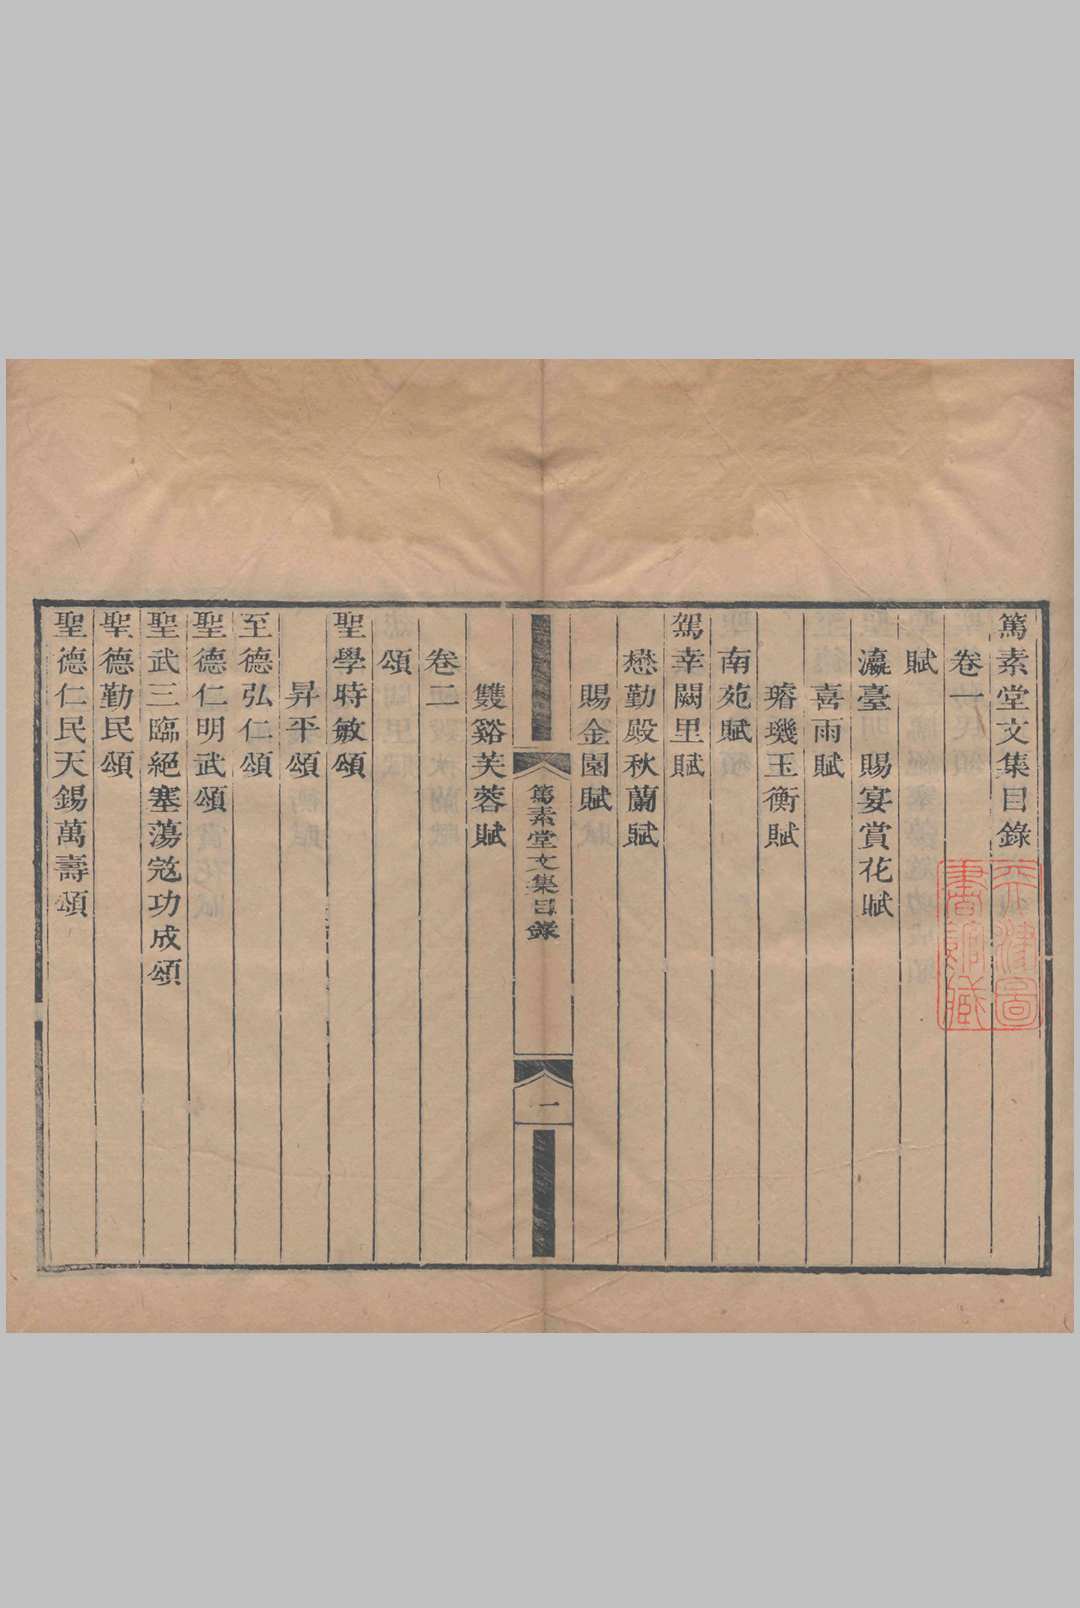 篤素堂文集目錄
卷一
賦
瀛臺　賜宴賞花賦
喜雨賦
璿璣玉衡賦
南苑賦
駕幸闕里賦
懋勤殿秋蘭賦
賜金園賦
篤素堂文集目錄
一
雙谿芙蓉賦
卷二
頌
聖學時敏頌
昇平頌
至德弘仁頌
聖德仁明武頌
聖武三臨絕塞蕩寇功成頌
聖德勤民頌
聖德仁民天錫萬壽頌
天津圖
書館藏